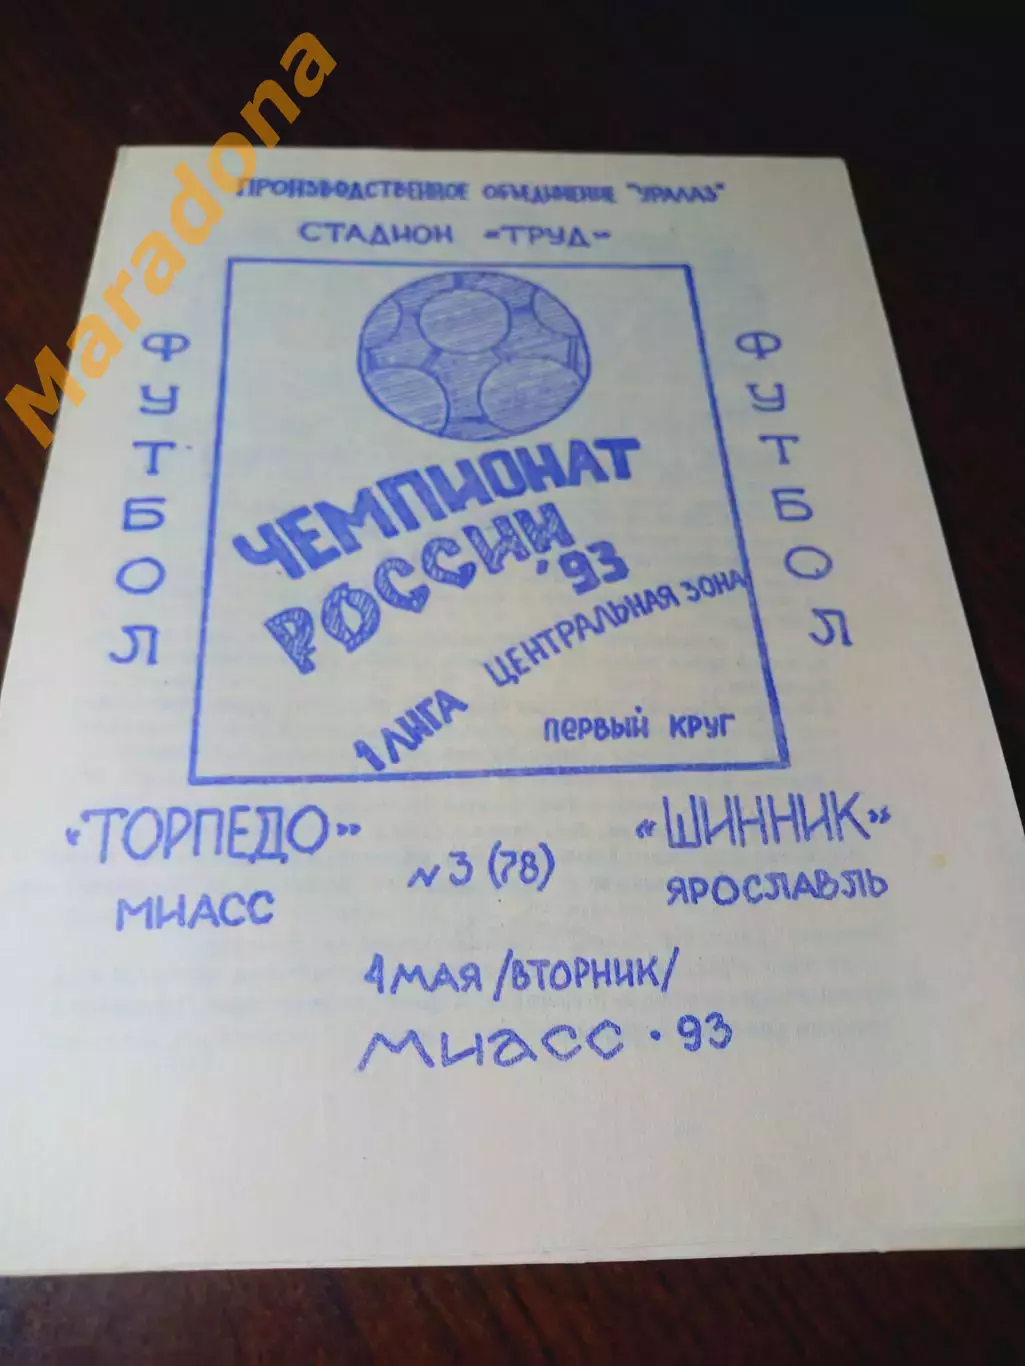 Maradona
ПРОИЗВОДСТВЕННОЕ ОБЪЕДИНЕНИЕ "УРАЛАЗ"
СТАДИОН «ТРУД»
ФУТБОЛ
ФУТБОЛ
ЧЕМПИОНАТ
РОССИИ, '93
1 ЛИГА ЦЕНТРАЛЬНАЯ ЗОНА
ПЕРВЫЙ КРУГ
«ТОРПЕДО»
МИАСС
N 3 (78)
«ШИННИК»
ЯРОСЛАВЛЬ
4 МАЯ /ВТОРНИК/
МИАСС • 93